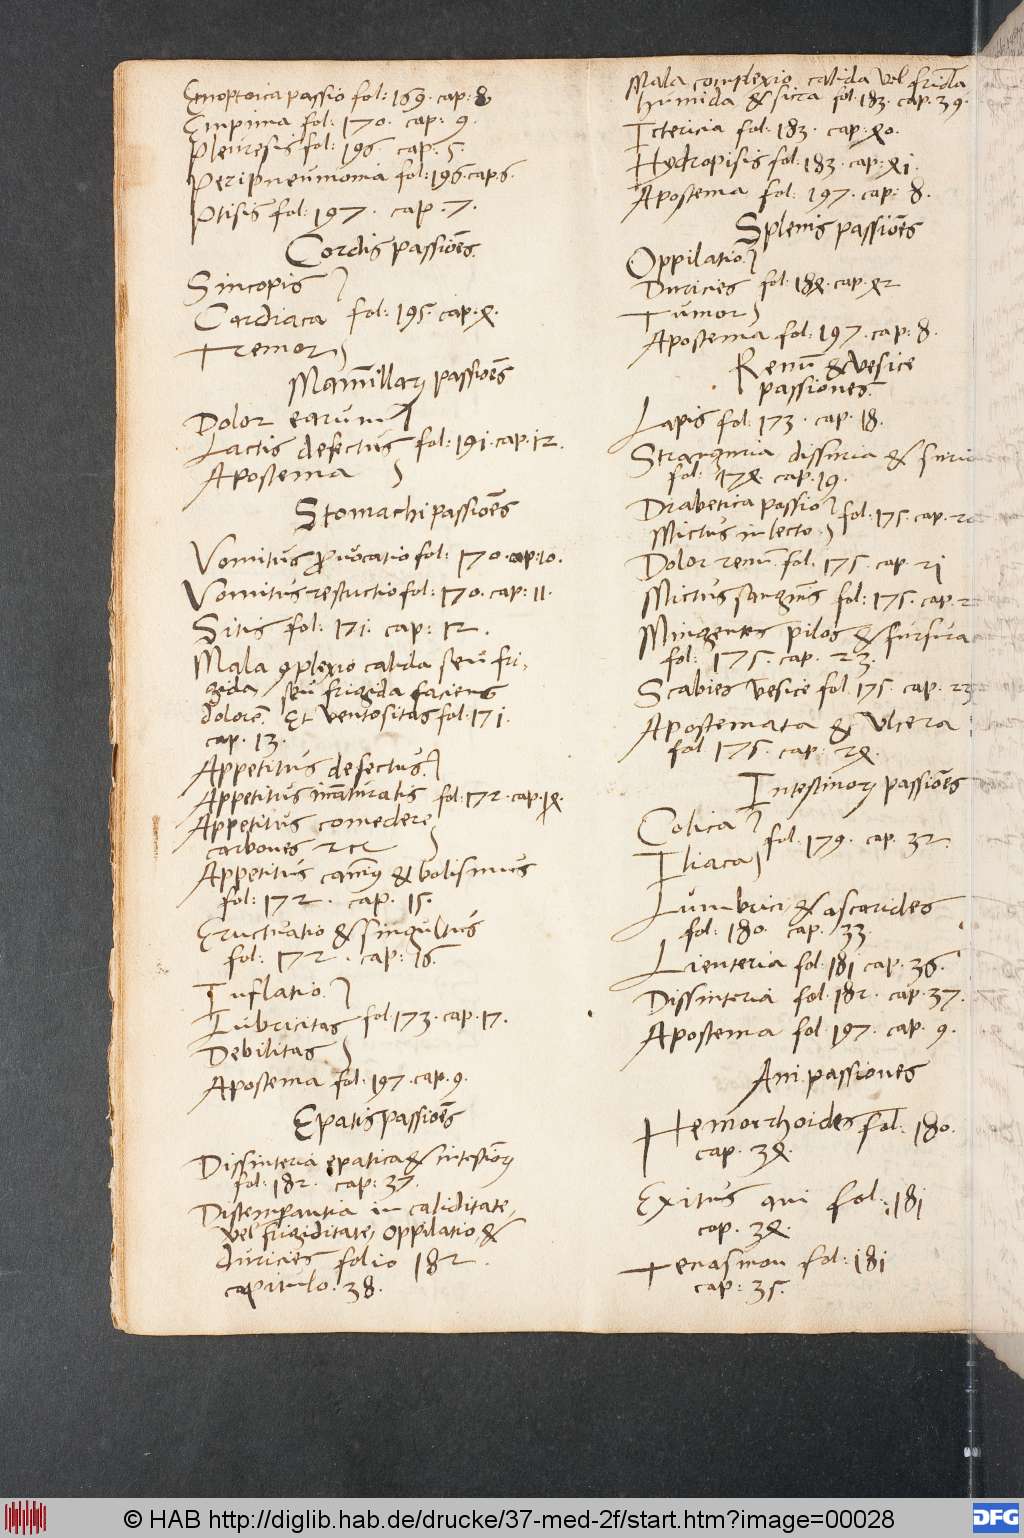 Emoptoica passio fol: 169. cap: 8
Empima fol: 170. cap: 9.
Pleuresis fol: 196. cap. 5.
Peripneumonia fol: 196. cap 6.
Ptisis fol: 197. cap. 7.
Cordis passiões.
Sincopis
Cardiaca fol: 195. cap. 4.
Tremor
Mamillarꝝ passiões
Dolor earum
Lactis defectus fol: 191. cap. 12.
Apostema
Stomachi passiões
Vomitus ꝓvocatio fol: 170. cap: 10.
Vomitus restrictio fol: 170. cap: 11.
Sitis fol: 171. cap: 12.
Mala ꝯplexio calida seu fri-
gida, seu frigida faciens
dolorē. Et ventositas fol: 171.
cap. 13.
Appetitus defectus.
Appetitus inn̄aturalis fol. 172. cap. 14.
Appetitus comedere
carbones etc
Appetitus canīꝰ & bolismus
fol: 172. cap. 15.
Eructuatio & singultus
fol: 172. cap: 16.
Inflatio.
Lubricitas fol 173. cap. 17.
Debilitas
Apostema fol. 197. cap. 9.
Epatis passiões
Dissinteria epatica & intestiōrꝝ
fol: 182. cap: 37.
Distemperantia in caliditate,
vel frigiditate, oppilatio, &
duricies folio 182.
capitulo. 38.
Mala complexio calida vel frida
humida & sicca fol. 183. cap. 39.
Ictericia fol: 183. cap. 40.
Hydropisis fol. 183. cap: 41.
Apostema fol. 197. cap: 8.
Splenis passiões
Oppilatio
Duricies fol. 184. cap. 42
Tumor
Apostema fol. 197. cap: 8.
Renū & vesice
passiones.
Lapis fol. 173. cap. 18.
Stranguria dissuria &
fol. 174. cap. 19.
Diabetica passio fol. 175. cap. 20
Mictus in lecto.
Dolor renū. fol. 175. cap. 21
Mictus sanguīs fol: 175. cap.
Mingentes pilos & furfura
fol: 175. cap. 23.
Scabies vesice fol. 175. cap. 23
Apostemata & vlcera
fol 175. cap: 24.
Intestinorꝝ passiões
Colica fol. 179. cap. 32.
Iliaca
Lumbrici & ascarides
fol. 180. cap. 33.
Lienteria fol. 181 cap. 36.
Dissinteria fol. 182. cap. 37.
Apostema fol 197. cap. 9.
Ani passiones
Hemorrhoides fol. 180.
cap. 34.
Exitus ani fol. 181
cap. 34.
Tenasmon fol: 181
cap: 35.
© HAB http://diglib.hab.de/drucke/37-med-2f/start.htm?image=00028
DFG